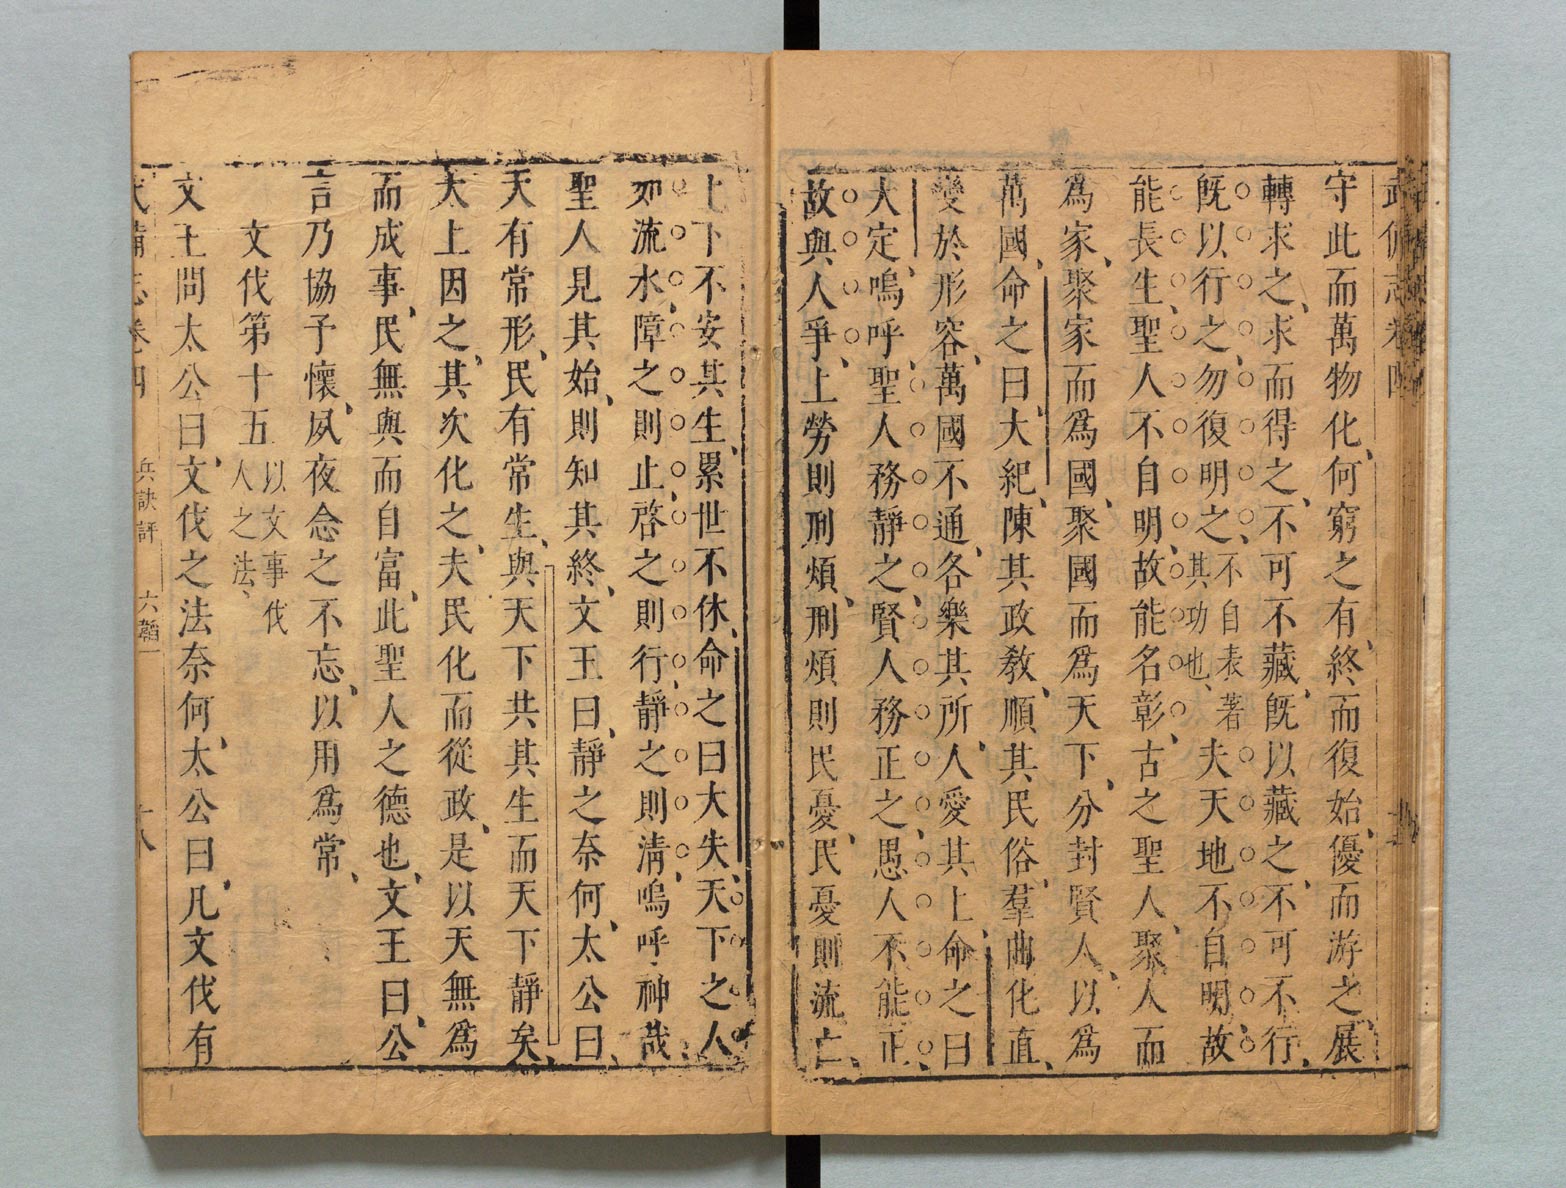 武備志卷四
守此而萬物化、何窮之有、終而復始、優而游之、展
轉求之、求而得之、不可不藏、旣以藏之、不可不行、
旣以行之、勿復明之、不自表著其功也、夫天地不自明、故
能長生、聖人不自明、故能名彰、古之聖人、聚人而
爲家、聚家而爲國、聚國而爲天下、分封賢人、以爲
萬國、命之曰、大紀、陳其政敎、順其民俗、羣曲化直、
變於形容、萬國不通、各樂其所、人愛其上、命之曰
大定、嗚呼、聖人務靜之、賢人務正之、愚人不能正、
故與人爭、上勞則刑煩、刑煩則民憂、民憂則流亡、
上下不安其生、累世不休、命之曰大失、天下之人
如流水、障之則止、啓之則行、靜之則淸、嗚呼神哉、
聖人見其始、則知其終、文王曰、靜之奈何、太公曰、
天有常形、民有常生、與天下共其生而天下靜矣、
太上因之、其次化之、夫民化而從政、是以天無爲
而成事、民無與而自富、此聖人之德也、文王曰、公
言乃協予懷、夙夜念之不忘、以用爲常、
文伐第十五 以文事伐人之法、
文王問太公曰、文伐之法奈何、太公曰、凡文伐有
武備志卷四 兵訣評 六韜一 十八